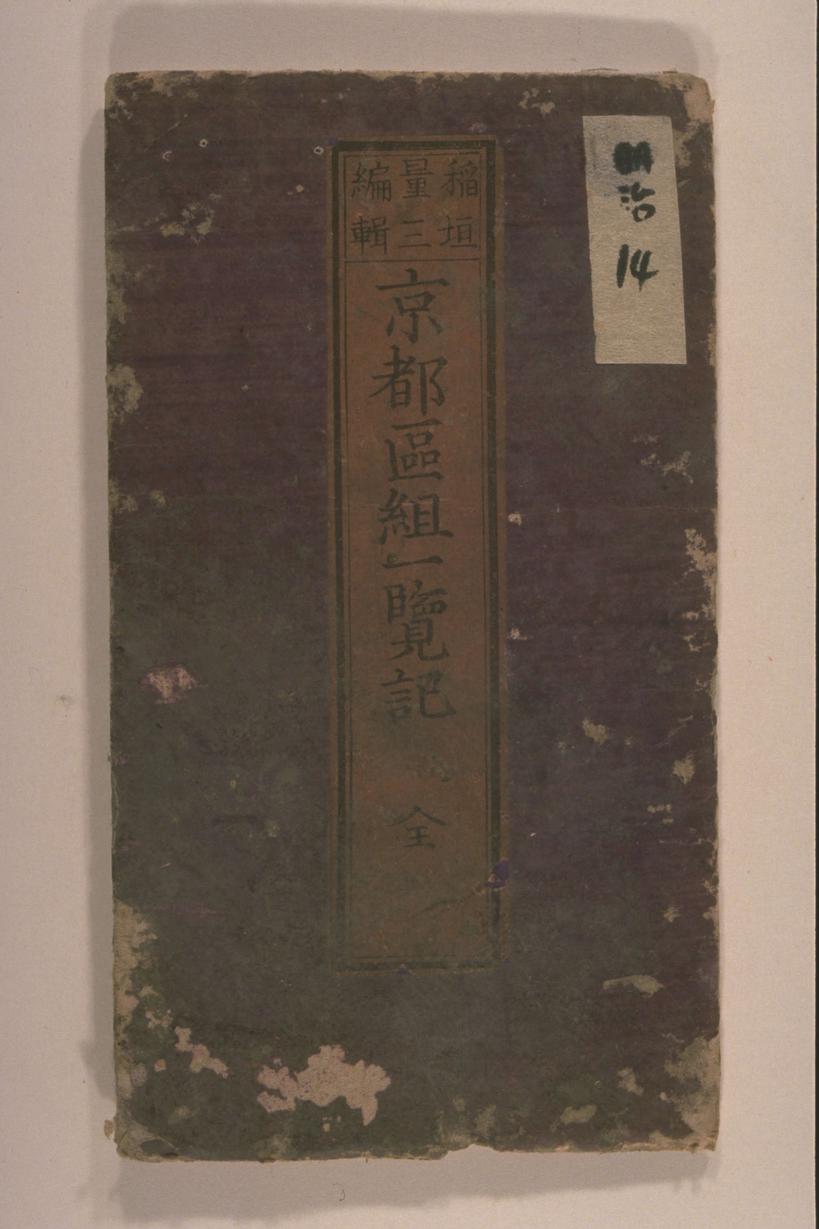 稲垣
量三
編輯
京都區組一覽記 全
明治
14